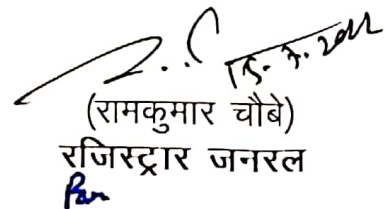 15.7.2022
(रामकुमार चौबे)
रजिस्ट्रार जनरल